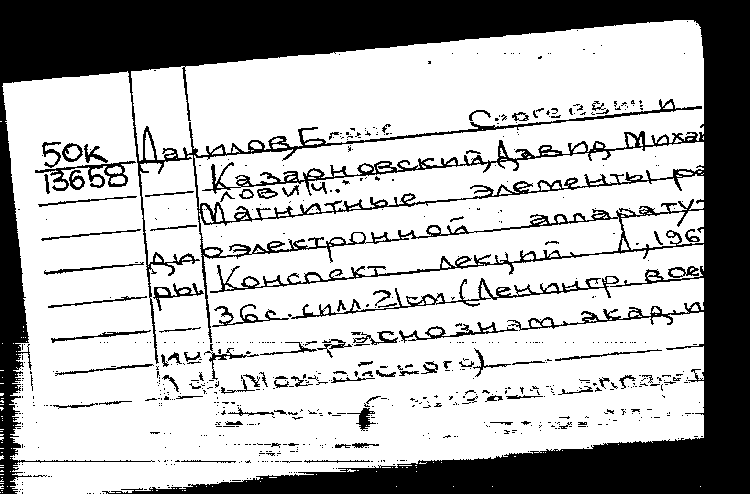 50К Данилов, Борис Сергеевич и
13658 Казарновский, Давид Михай
лович.
Магнитные элементы ра
диоэлектронной аппарату-
ры Конспект лекций. Л., 196
36с. с илл. 21см. (Ленингр. воен
инж. краснознам. акад. и
Можайского)